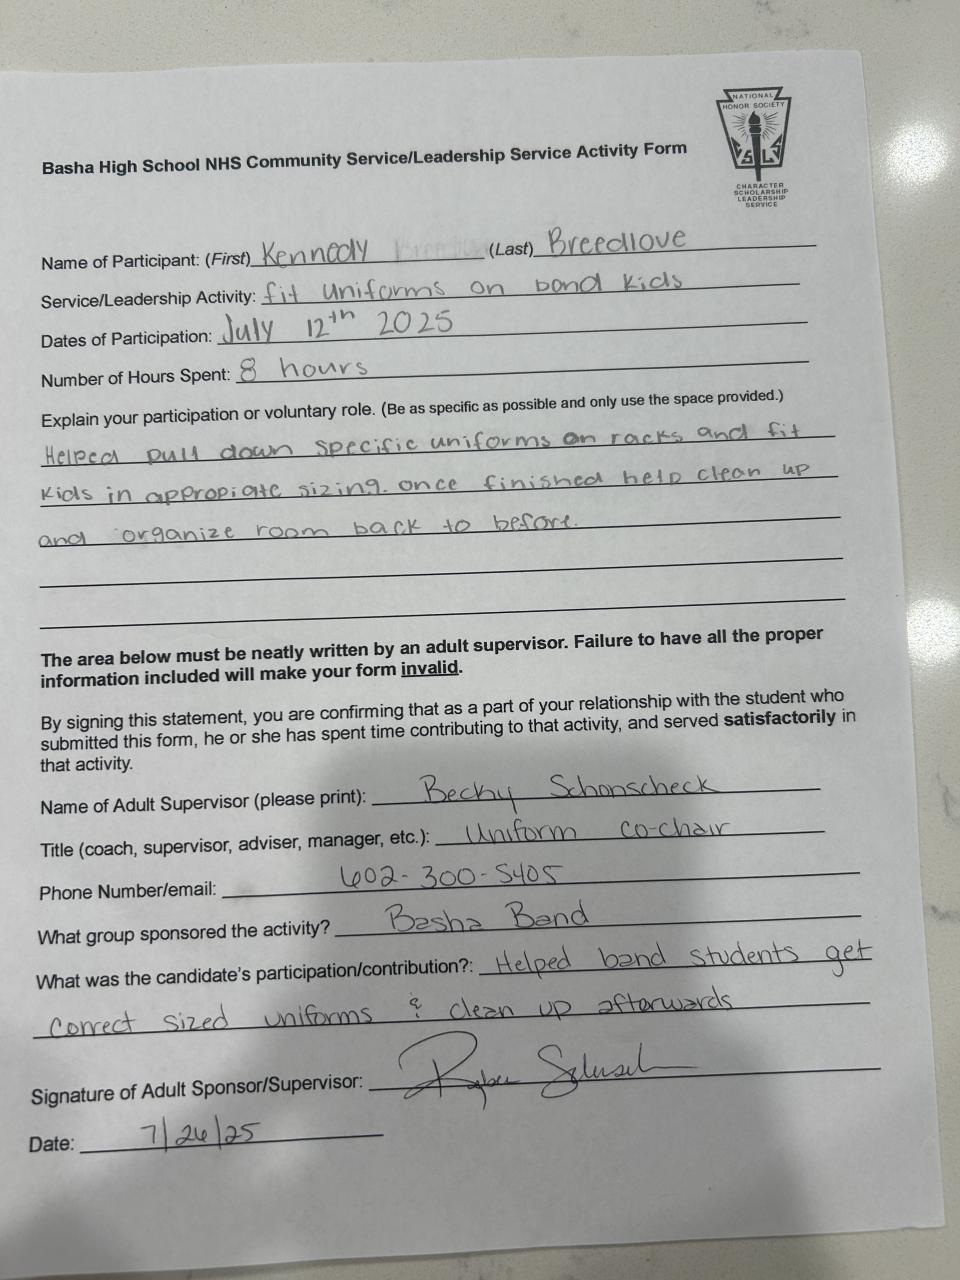 NATIONAL
HONOR SOCIETY
S L
CHARACTER
SCHOLARSHIP
LEADERSHIP
SERVICE
Basha High School NHS Community Service/Leadership Service Activity Form
Name of Participant: (First) Kennedy (Last) Breedlove
Service/Leadership Activity: fit uniforms on band kids
Dates of Participation: July 12th 2025
Number of Hours Spent: 8 hours
Explain your participation or voluntary role. (Be as specific as possible and only use the space provided.)
Helped pull down specific uniforms on racks and fit
kids in appropiate sizing. once finished help clean up
and organize room back to before.
The area below must be neatly written by an adult supervisor. Failure to have all the proper
information included will make your form invalid.
By signing this statement, you are confirming that as a part of your relationship with the student who
submitted this form, he or she has spent time contributing to that activity, and served satisfactorily in
that activity.
Name of Adult Supervisor (please print): Becky Schonscheck
Title (coach, supervisor, adviser, manager, etc.): Uniform co-chair
Phone Number/email: 602-300-5405
What group sponsored the activity? Basha Band
What was the candidate's participation/contribution?: Helped band students get
correct sized uniforms & clean up afterwards
Signature of Adult Sponsor/Supervisor:
Date: 7/26/25